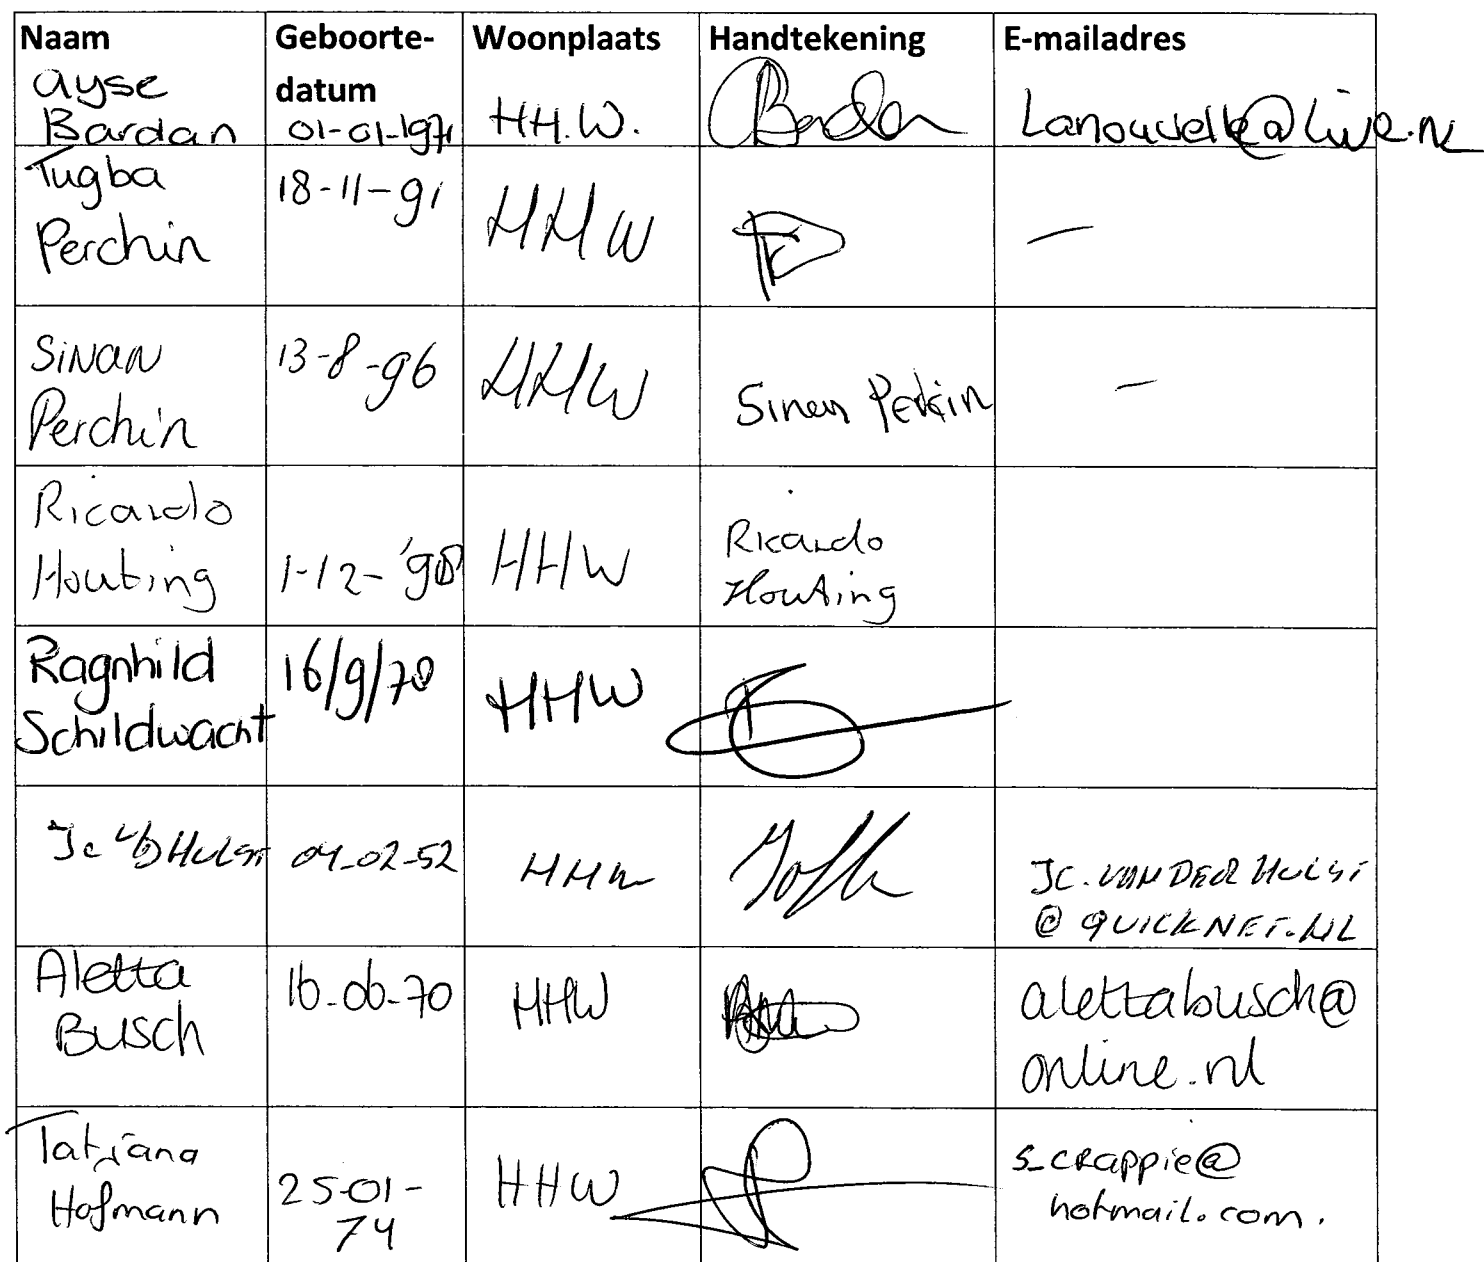 Naam Geboorte- Woonplaats Handtekening E-mailadres
datum
Ayse
Bardan 01-01-1971 HH.W. Bardan Lanouvelle@live.nl
Tugba
Perchin 18-11-91 HHW —
Sinan
Perchin 13-8-96 HHW Sinan Perkin —
Ricardo
Houting 1-12-'98 HHW Ricardo
Houting
Ragnhild
Schildwacht 16/9/70 HHW
Jc v/d Hulst 04-02-52 HHW JC.VANDERHULST
@QUICKNET.NL
Aletta
Busch 16-06-70 HHW alettabusch@
online.nl
Tatjana
Hofmann 25-01-
74 HHW s_crappie@
hotmail.com.